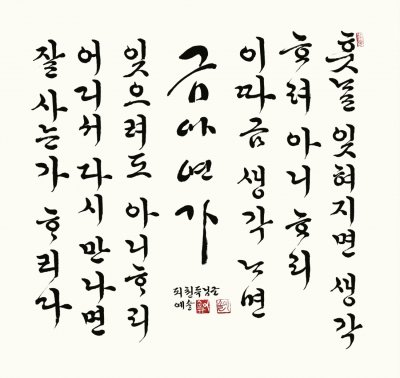 훗날 잊혀지면 생각
하려 아니 하리
이따금 생각나면
금아연가
잊으려도 아니하리
어디서 다시 만나면
잘 사는가 하리라
피천득님글
예송